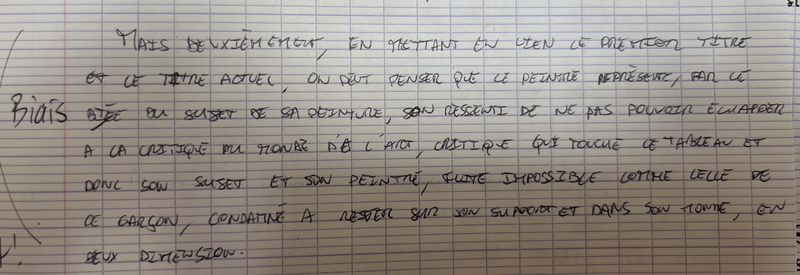 MAIS DEUXIÈMEMENT, EN METTANT EN LIEN LE PREMIER TITRE
ET LE TITRE ACTUEL, ON PEUT PENSER QUE LE PEINTRE REPRÉSENTE, PAR LE
Biais DU SUJET DE SA PEINTURE, SON RESSENTI DE NE PAS POUVOIR ÉCHAPPER
A LA CRITIQUE DU MONDE DE L'ART, CRITIQUE QUI TOUCHE LE TABLEAU ET
DONC SON SUJET ET SON PEINTRE, FUITE IMPOSSIBLE COMME CELLE DE
CE GARÇON, CONDAMNÉ A RESTER SUR SON SUPPORT ET DANS SON MONDE, EN
DEUX DIMENSION.